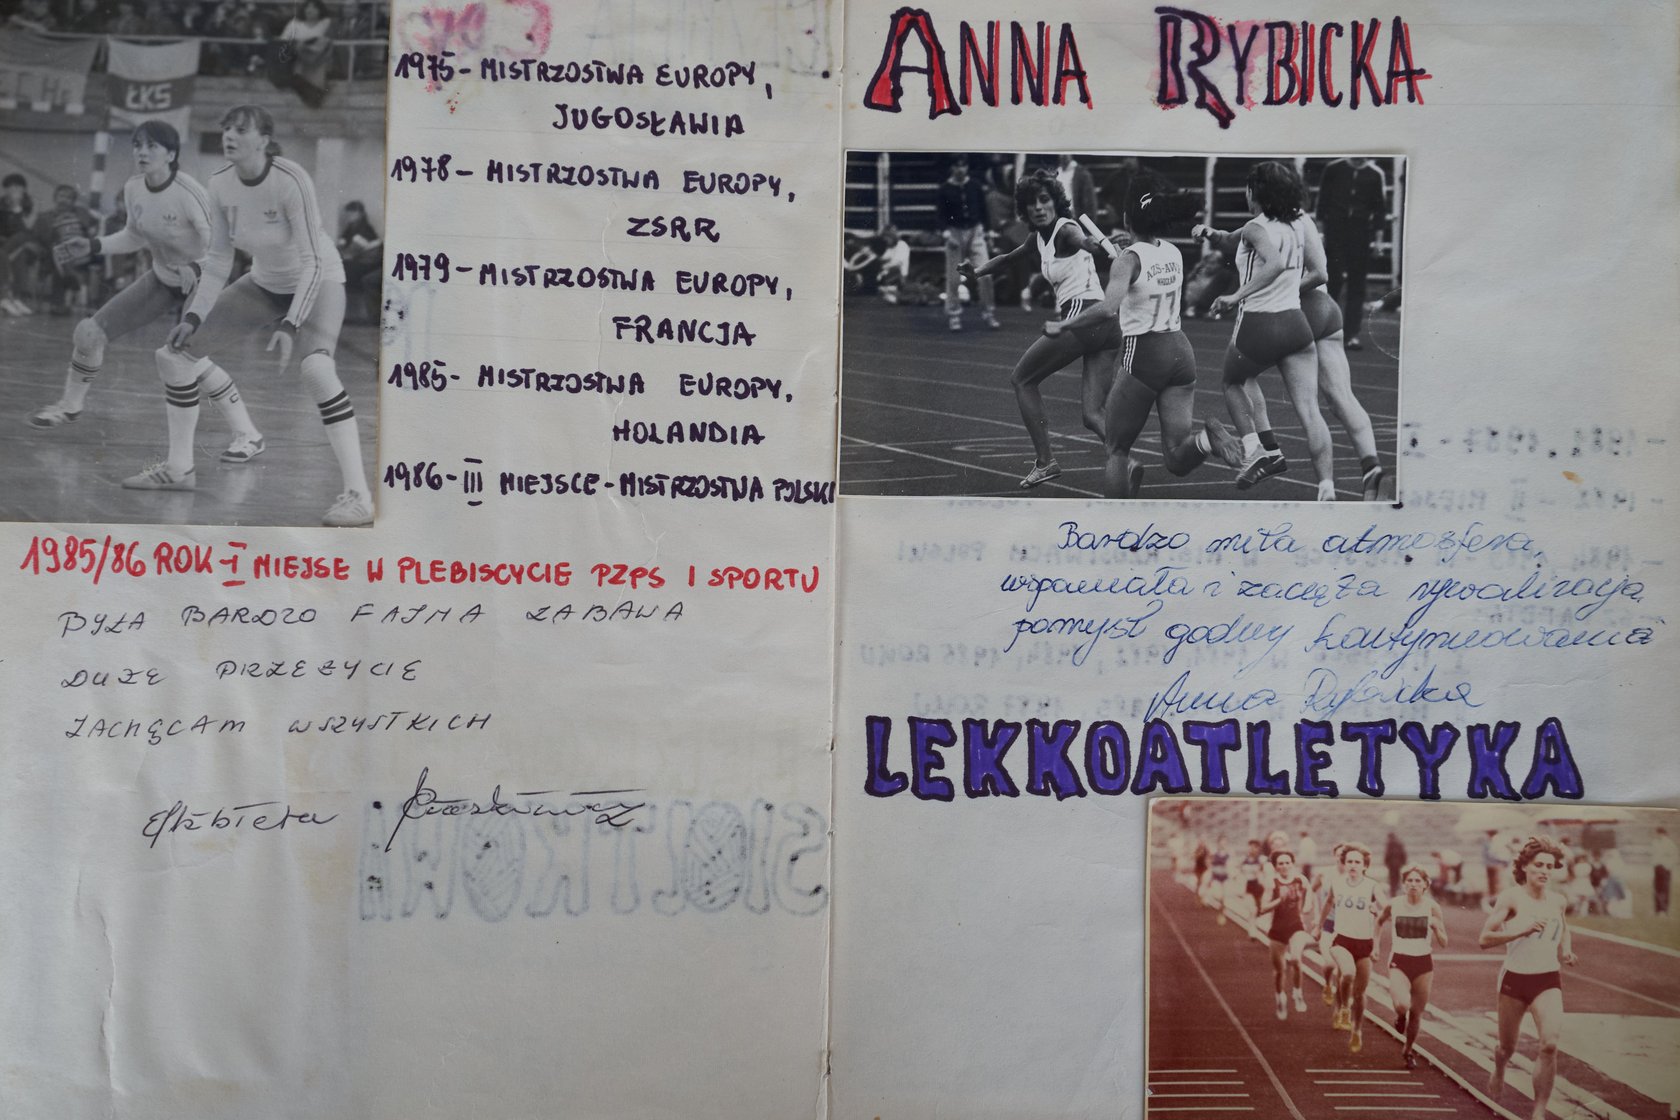 ŁKS
1975- MISTRZOSTWA EUROPY,
JUGOSŁAWIA
1978- MISTRZOSTWA EUROPY,
ZSRR
1979- MISTRZOSTWA EUROPY,
FRANCJA
1985- MISTRZOSTWA EUROPY,
HOLANDIA
1986- III MIEJSCE- MISTRZOSTWA POLSKI
1985/86 ROK - I MIEJSE W PLEBISCYCIE PZPS I SPORTU
BYŁA BARDZO FAJNA ZABAWA
DUŻE PRZEŻYCIE
ZACHĘCAM WSZYSTKICH
Elżbieta
ANNA RYBICKA
AZS-AWF
WROCŁAW
77
Bardzo miła atmosfera,
wspaniała i zacięta rywalizacja,
pomysł godny kontynuowania
Anna Rybicka
LEKKOATLETYKA
765
77